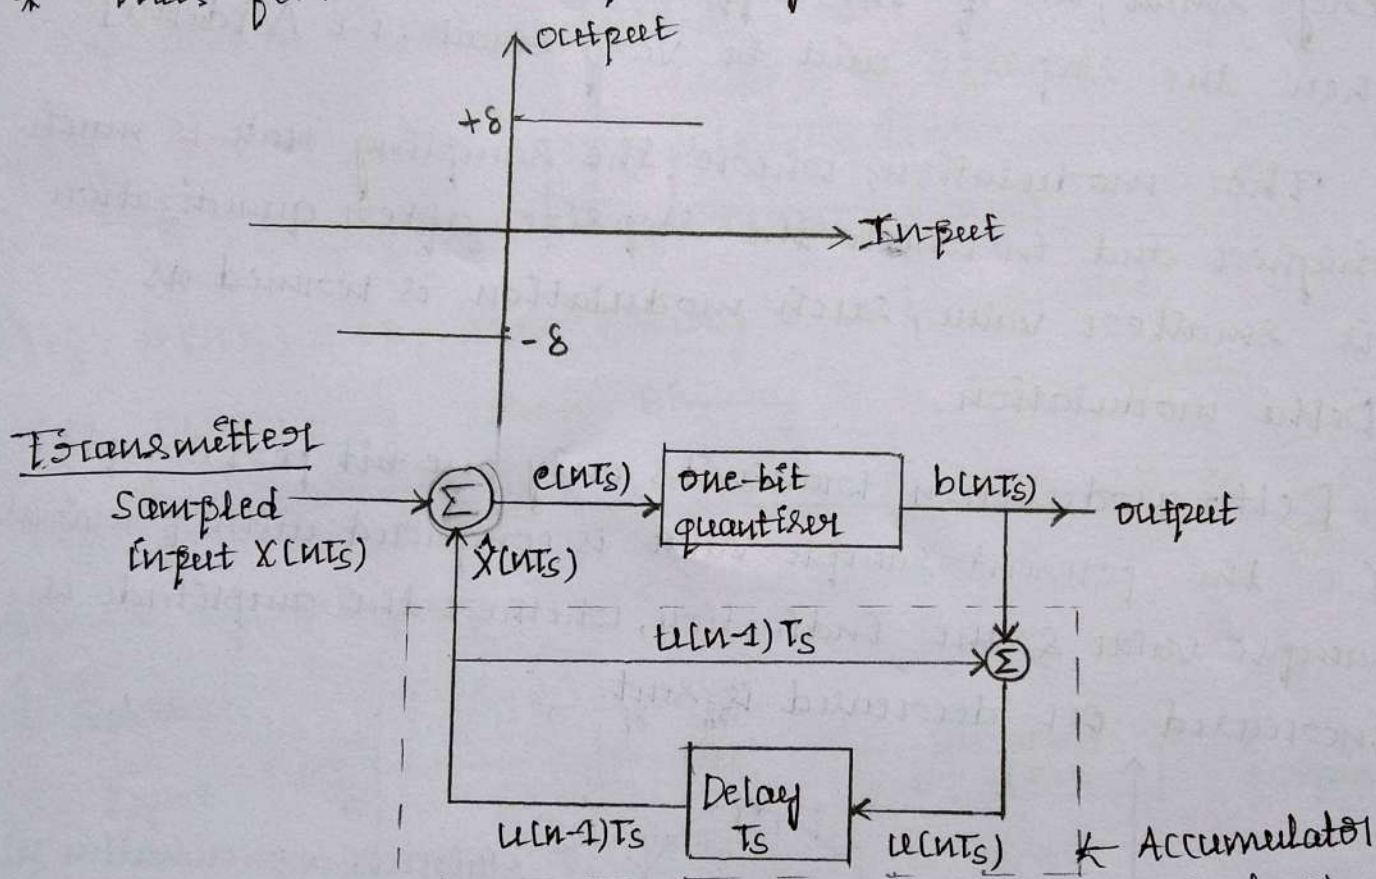 output
+δ
Input
-δ
Transmitter
Sampled
input X(nTs)
Σ
e(nTs)
one-bit
quantiser
b(nTs)
output
x̂(nTs)
u(n-1)Ts
Σ
Delay
Ts
u(n-1)Ts
u(nTs)
Accumulator